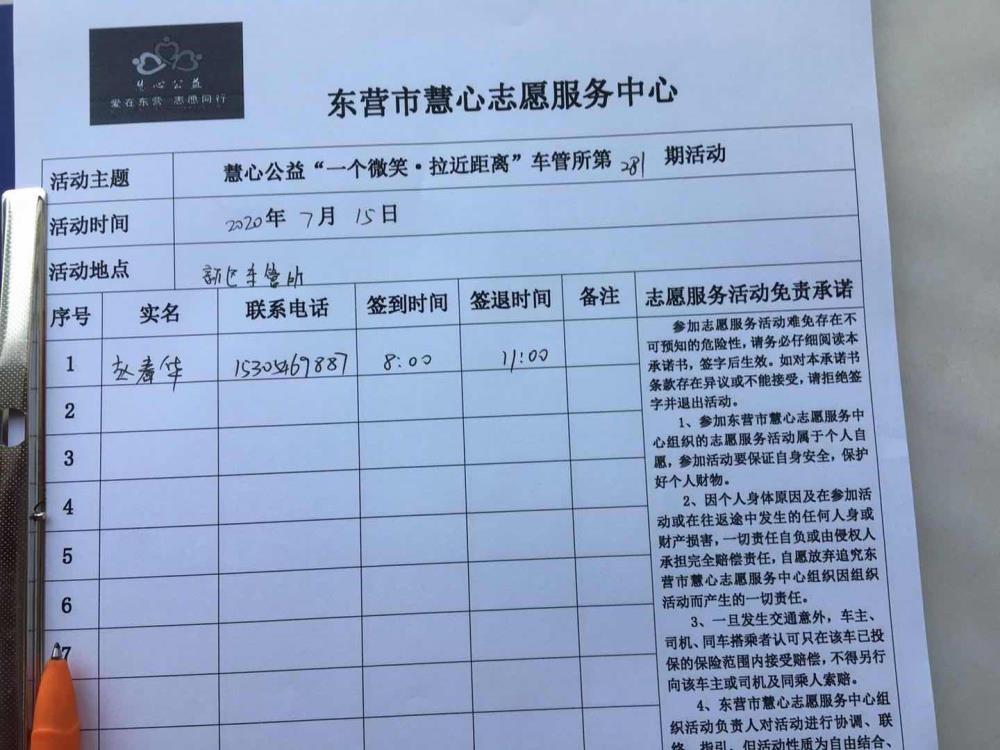 慧心公益
爱在东营 志愿同行
东营市慧心志愿服务中心
活动主题 慧心公益“一个微笑·拉近距离”车管所第281期活动
活动时间 2020年7月15日
活动地点 新区车管所
序号 实名 联系电话 签到时间 签退时间 备注 志愿服务活动免责承诺
1 赵春华 15305469887 8:00 11:00
2
3
4
5
6
7
参加志愿服务活动难免存在不
可预知的危险性,请务必仔细阅读本
承诺书,签字后生效。如对本承诺书
条款存在异议或不能接受,请拒绝签
字并退出活动。
1、参加东营市慧心志愿服务中
心组织的志愿服务活动属于个人自
愿,参加活动要保证自身安全,保护
好个人财物。
2、因个人身体原因及在参加活
动或在往返途中发生的任何人身或
财产损害,一切责任自负或由侵权人
承担完全赔偿责任,自愿放弃追究东
营市慧心志愿服务中心组织因组织
活动而产生的一切责任。
3、一旦发生交通意外,车主、
司机、同车搭乘者认可只在该车已投
保的保险范围内接受赔偿,不得另行
向该车主或司机及同乘人索赔。
4、东营市慧心志愿服务中心组
织活动负责人对活动进行协调、联
络、指引,但活动性质为自由结合、